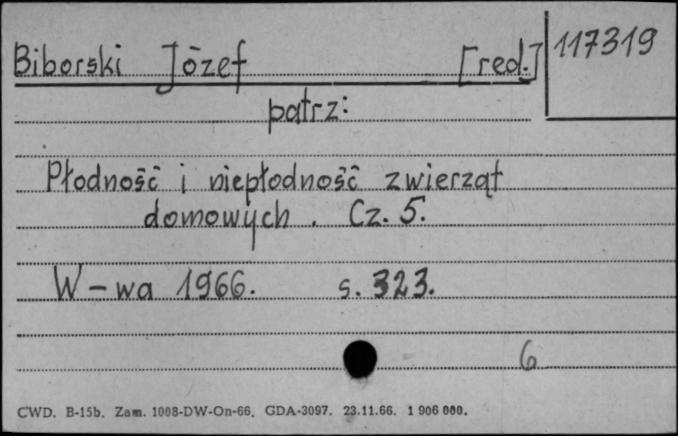 Biborski Józef [red.] 117319
patrz:
Płodność i niepłodność zwierząt
domowych. Cz. 5.
W-wa 1966. s. 323.
6
CWD. B-15b. Zam. 1008-DW-On-66. GDA-3097. 23.11.66. 1 906 000.